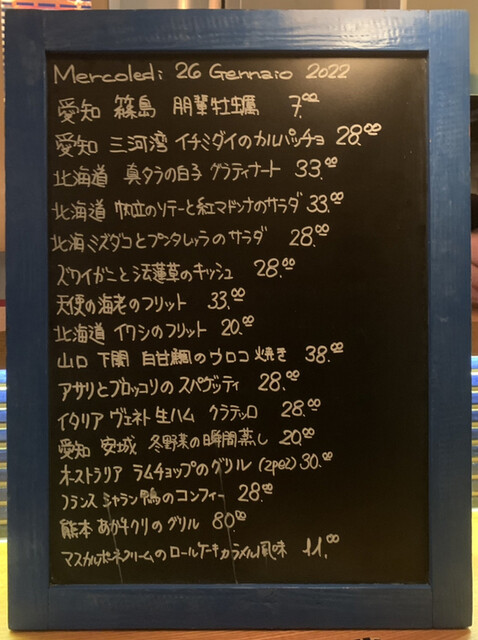 Mercoledì 26 Gennaio 2022
愛知 篠島 朋輩牡蠣 7.00
愛知 三河湾 イチミダイのカルパッチョ 28.00
北海道 真タラの白子 グラティナート 33.00
北海道 帆立のソテーと紅マドンナのサラダ 33.00
北海ミズダコとプンタレッラのサラダ 28.00
ズワイガニと法蓮草のキッシュ 28.00
天使の海老のフリット 33.00
北海道 イワシのフリット 20.00
山口 下関 白甘鯛のウロコ焼き 38.00
アサリとブロッコリのスパゲッティ 28.00
イタリア ヴェネト 生ハム クラテッロ 28.00
愛知 安城 冬野菜の瞬間蒸し 20.00
オーストラリア ラムチョップのグリル (2pez) 30.00
フランス シャラン鴨のコンフィー 28.00
熊本 あか牛クリのグリル 80.00
マスカルポーネクリームのロールケーキカラメル風味 11.00